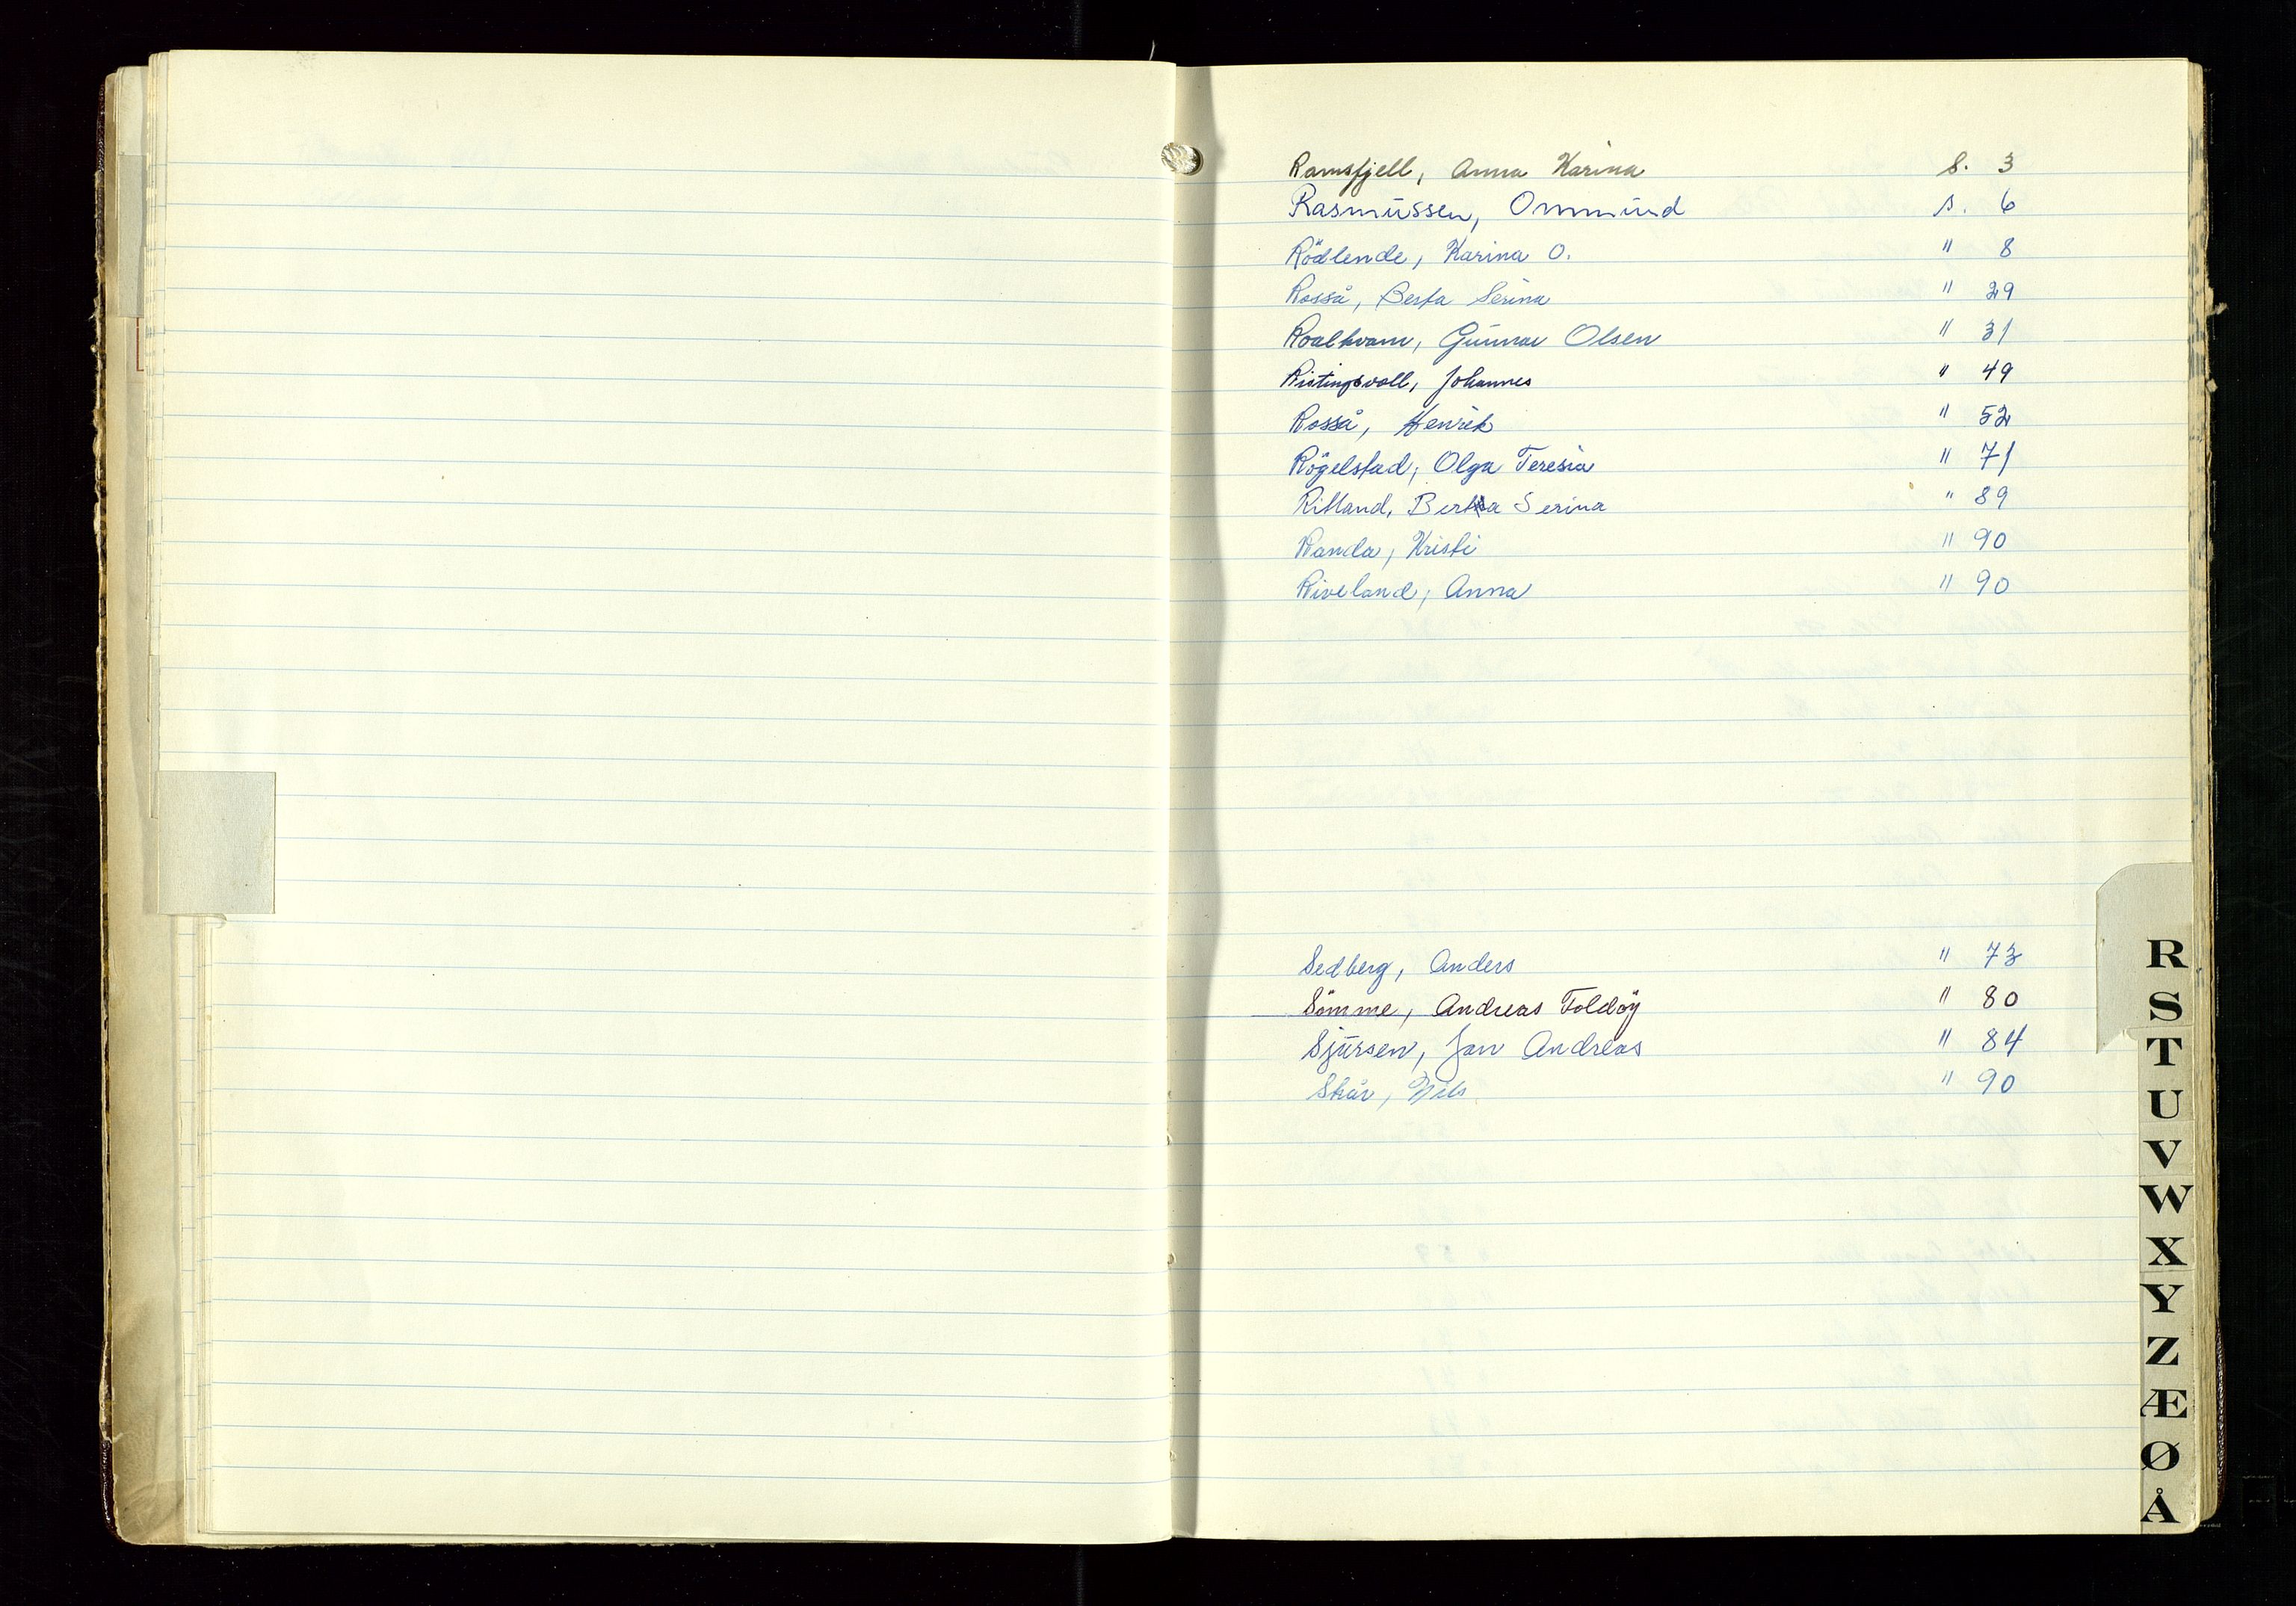 Ramsfjell, Anna Karina s. 3
Rasmussen, Ommund s. 6
Rödlende, Karina O. " 8
Rosså, Berta Serina " 29
Roalkvam, Gunnar Olsen " 31
Ristingsvoll, Johannes " 49
Rosså, Henrik " 52
Rögelstad, Olga Teresia " 71
Ritland, Berta Serina " 89
Randa, Kristi " 90
Riveland, Anna " 90
Sedberg, Anders " 73
Sömme, Andreas Foldöy " 80
Sjursen, Jan Andreas " 84
Skår, Nils " 90
R
S
T
U
V
W
X
Y
Z
Æ
Ø
Å